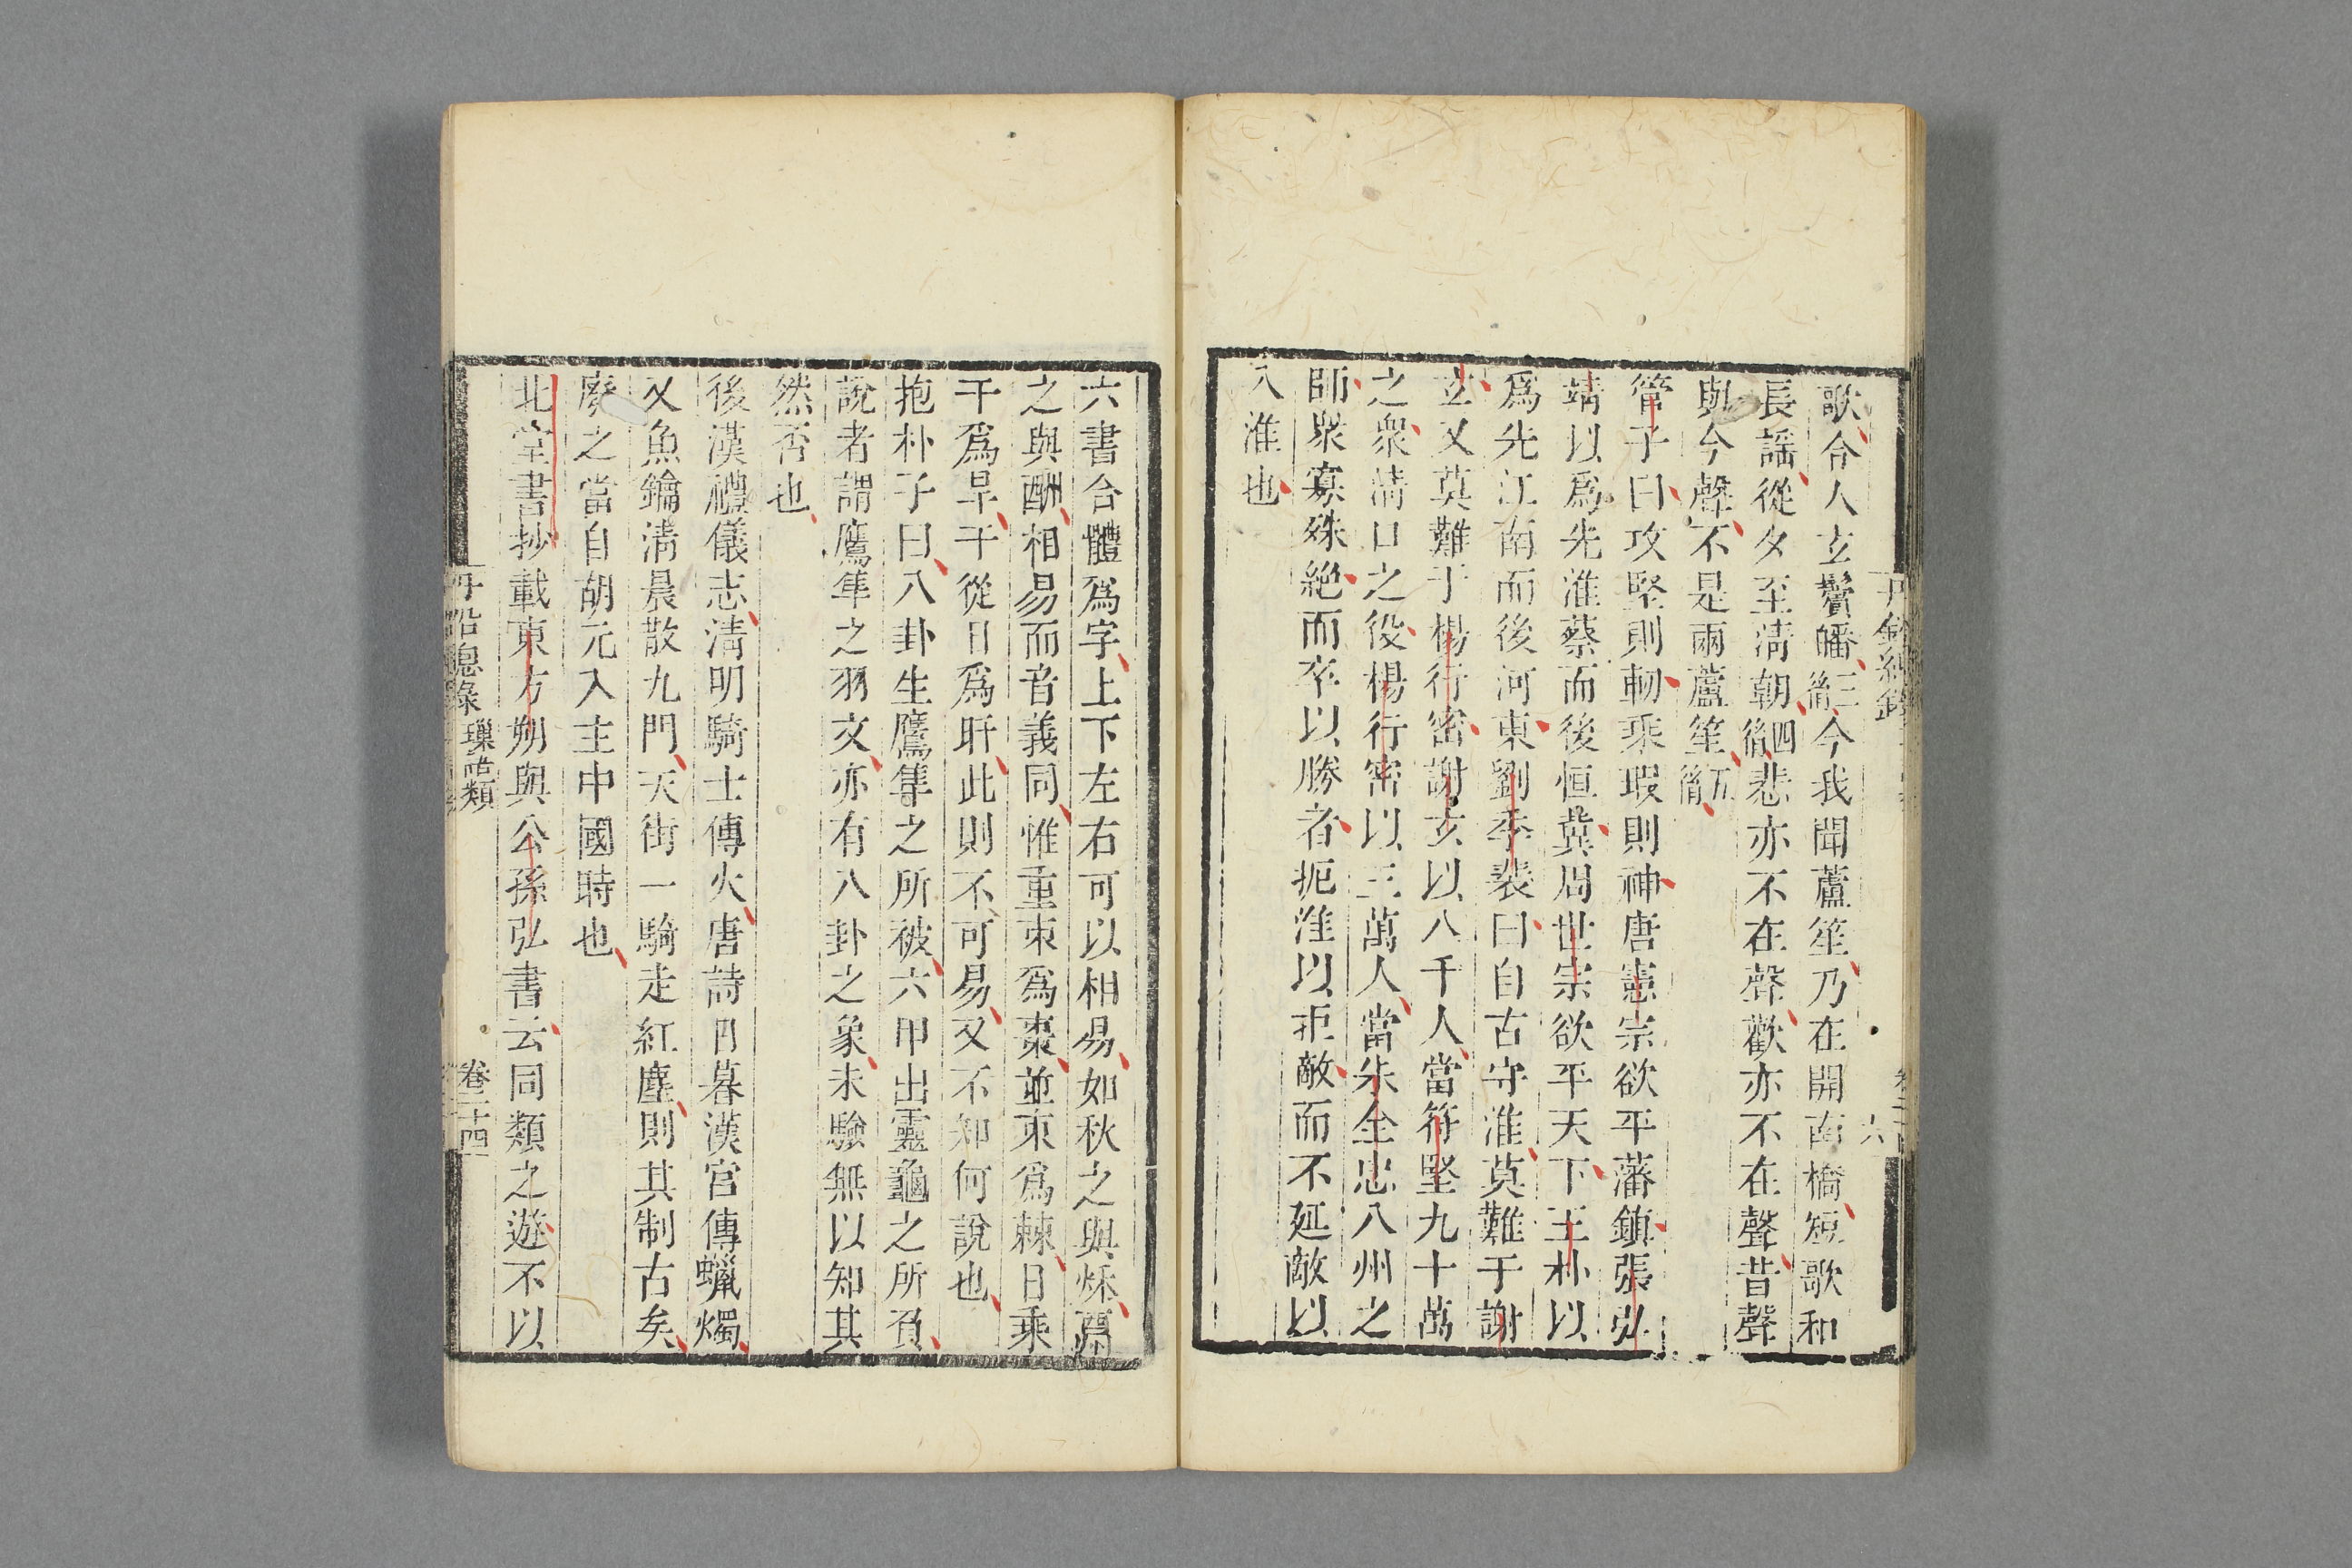 歌合人玄鬢皤三衢今我聞蘆笙乃在開南橋短歌和
長謡從夕至清朝四衢悲亦不在聲歡亦不在聲昔聲
與今聲不是兩蘆笙五衢
管子曰攻堅則軔乘瑕則神唐憲宗欲平藩鎮張弘
靖以爲先淮蔡而後恒冀周世宗欲平天下王朴以
爲先江南而後河東劉季裴曰自古守淮莫難于謝
玄又莫難于楊行密謝玄以八千人當符堅九十萬
之衆清口之役楊行密以三萬人當朱全忠八州之
師衆寡殊絶而卒以勝者扼淮以拒敵而不延敵以
入淮也
六書合體爲字上下左右可以相易如秋之與秌
之與酬相易而音義同惟重朿爲棗並朿爲棘日乘
干爲旱干從日爲旰此則不可易又不知何說也
抱朴子曰八卦生鷹隼之所被六甲出靈龜之所負
說者謂鷹隼之羽文亦有八卦之象未驗無以知其
然否也
後漢禮儀志清明騎士傳火唐詩日暮漢宮傳蠟燭
又魚鑰清晨散九門天街一騎走紅塵則其制古矣
廢之當自胡元入主中國時也
北堂書抄載東方朔與公孫弘書云同類之遊不以
丹鉛總錄 璅語類 卷二十四